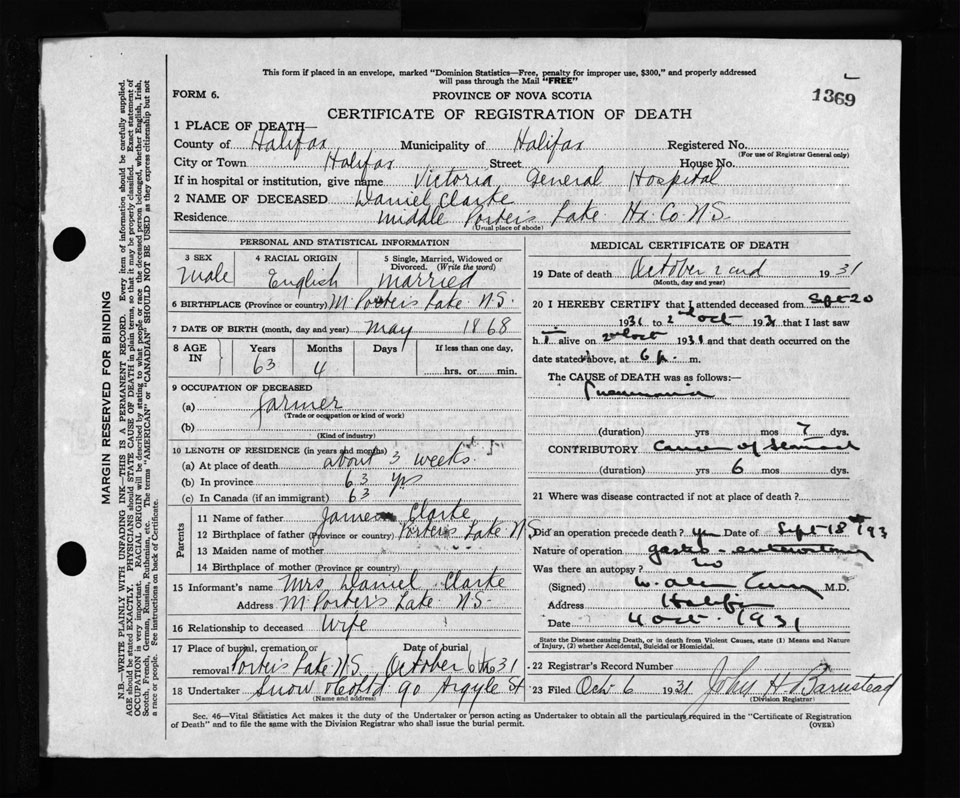 This form if placed in an envelope, marked "Dominion Statistics—Free, penalty for improper use, $300," and properly addressed
will pass through the Mail "FREE"
FORM 6.
PROVINCE OF NOVA SCOTIA
1369
CERTIFICATE OF REGISTRATION OF DEATH
1 PLACE OF DEATH—
County of Halifax Municipality of Halifax Registered No.
(For use of Registrar General only)
City or Town Halifax Street House No.
If in hospital or institution, give name Victoria General Hospital
2 NAME OF DECEASED Daniel Clarke
Residence Middle Porter's Lake Hx. Co. N.S.
(Usual place of abode)
PERSONAL AND STATISTICAL INFORMATION
3 SEX
Male
4 RACIAL ORIGIN
English
5 Single, Married, Widowed or
Divorced. (Write the word)
Married
6 BIRTHPLACE (Province or country) M. Porter's Lake N.S.
7 DATE OF BIRTH (month, day and year) May 1868
8 AGE
IN
Years
63
Months
4
Days
If less than one day,
hrs. or min.
9 OCCUPATION OF DECEASED
(a) Farmer
(Trade or occupation or kind of work)
(b)
(Kind of industry)
10 LENGTH OF RESIDENCE (in years and months)
(a) At place of death about 3 weeks
(b) In province 63 yrs
(c) In Canada (if an immigrant) 63
Parents
11 Name of father James Clarke
12 Birthplace of father (Province or country) Porter's Lake N.S.
13 Maiden name of mother
14 Birthplace of mother (Province or country)
15 Informant's name Mrs Daniel Clarke
Address M Porter's Lake N.S.
16 Relationship to deceased Wife
17 Place of burial, cremation or
removal Porter's Lake N.S.
Date of burial
October 6th 31
18 Undertaker Snow & Co Ltd 90 Argyle St
(Name and address)
MEDICAL CERTIFICATE OF DEATH
19 Date of death October 2nd 1931
(Month, day and year)
20 I HEREBY CERTIFY that I attended deceased from Sept 20
1931 to 2nd Oct 1931 that I last saw
h i alive on 2nd Oct 1931 and that death occurred on the
date stated above, at 6 p. m.
The CAUSE OF DEATH was as follows:—
Pneumonia
(duration) yrs mos 7 dys.
CONTRIBUTORY Cancer of Stomach
(duration) yrs 6 mos dys.
21 Where was disease contracted if not at place of death?
Did an operation precede death? Yes Date of Sept 18th 193
Nature of operation gastro-enterostomy
Was there an autopsy? No
(Signed) W. Alan Curry M.D.
Address Halifax
Date 4 Oct. 1931
State the Disease causing Death, or in death from Violent Causes, state (1) Means and Nature
of Injury, (2) whether Accidental, Suicidal or Homicidal.
22 Registrar's Record Number
23 Filed Oct 6 1931 John H. Barnstead
(Division Registrar)
Sec. 46—Vital Statistics Act makes it the duty of the Undertaker or person acting as Undertaker to obtain all the particulars required in the "Certificate of Registration
of Death" and to file the same with the Division Registrar who shall issue the burial permit.
(OVER)
MARGIN RESERVED FOR BINDING
N.B.—WRITE PLAINLY WITH UNFADING INK—THIS IS A PERMANENT RECORD. Every item of information should be carefully supplied.
AGE should be stated EXACTLY. PHYSICIANS should STATE CAUSE OF DEATH in plain terms, so that it may be properly classified. Exact statement of
OCCUPATION is very important. RACIAL ORIGIN will be described by stating to what people or race the deceased person belonged, whether English, Irish,
Scotch, French, German, Russian, Ruthenian, etc. The terms "AMERICAN" or "CANADIAN" SHOULD NOT BE USED as they express citizenship but not
a race or people. See instructions on back of Certificate.